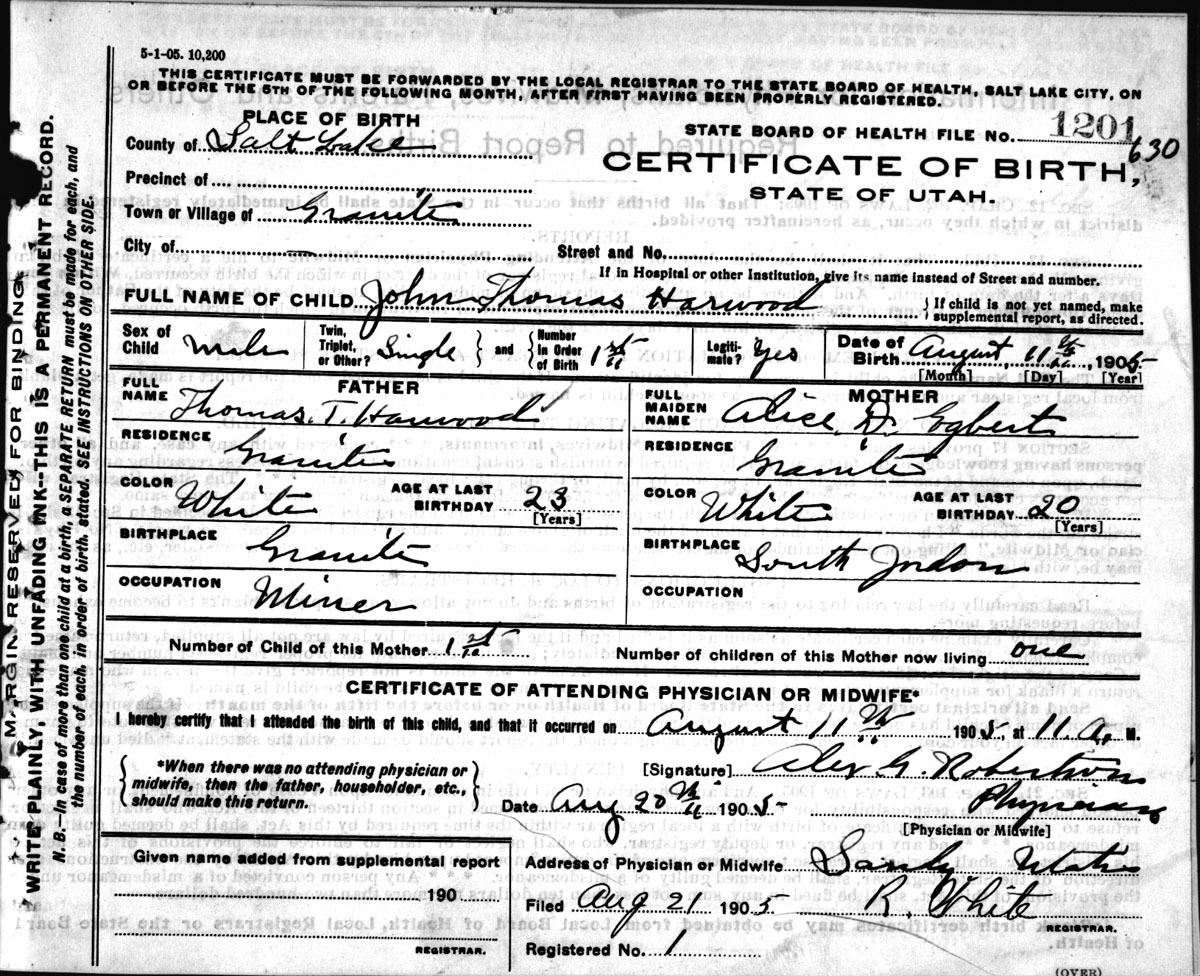 5-1-05. 10,200
THIS CERTIFICATE MUST BE FORWARDED BY THE LOCAL REGISTRAR TO THE STATE BOARD OF HEALTH, SALT LAKE CITY, ON
OR BEFORE THE 5TH OF THE FOLLOWING MONTH, AFTER FIRST HAVING BEEN PROPERLY REGISTERED.
PLACE OF BIRTH
STATE BOARD OF HEALTH FILE NO. 1201
630
County of Salt Lake
CERTIFICATE OF BIRTH,
Precinct of
STATE OF UTAH.
Town or Village of Granite
City of
Street and No.
If in Hospital or other Institution, give its name instead of Street and number.
FULL NAME OF CHILD John Thomas Harwood
If child is not yet named, make
supplemental report, as directed.
Sex of Child Male Twin, Triplet, or Other? Single and Number In Order of Birth 1st Legitimate? Yes Date of Birth August 11th, 1905
[Month] [Day] [Year]
FATHER
MOTHER
FULL NAME Thomas. T. Harwood
FULL MAIDEN NAME Alice D. Egbert
RESIDENCE Granite
RESIDENCE Granite
COLOR White AGE AT LAST BIRTHDAY 23 [Years]
COLOR White AGE AT LAST BIRTHDAY 20 [Years]
BIRTHPLACE Granite
BIRTHPLACE South Jordon
OCCUPATION Miner
OCCUPATION
Number of Child of this Mother 1st
Number of children of this Mother now living one
CERTIFICATE OF ATTENDING PHYSICIAN OR MIDWIFE*
I hereby certify that I attended the birth of this child, and that it occurred on August 11th 1905, at 11 A. M.
*When there was no attending physician or
midwife, then the father, householder, etc.,
should make this return.
[Signature] Alex G. Robertson
Physician
[Physician or Midwife]
Date Aug 20th 1905
Given name added from supplemental report
190
REGISTRAR.
Address of Physician or Midwife Sandy Utah
Filed Aug 21 1905 R. White
REGISTRAR.
Registered No. 1
(OVER)
MARGIN RESERVED FOR BINDING.
WRITE PLAINLY, WITH UNFADING INK—THIS IS A PERMANENT RECORD.
N. B.—In case of more than one child at a birth, a SEPARATE RETURN must be made for each, and
the number of each, in order of birth, stated. SEE INSTRUCTIONS ON OTHER SIDE.